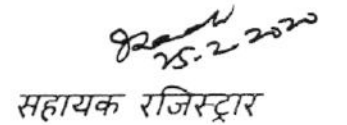 25-2-2020
सहायक रजिस्ट्रार